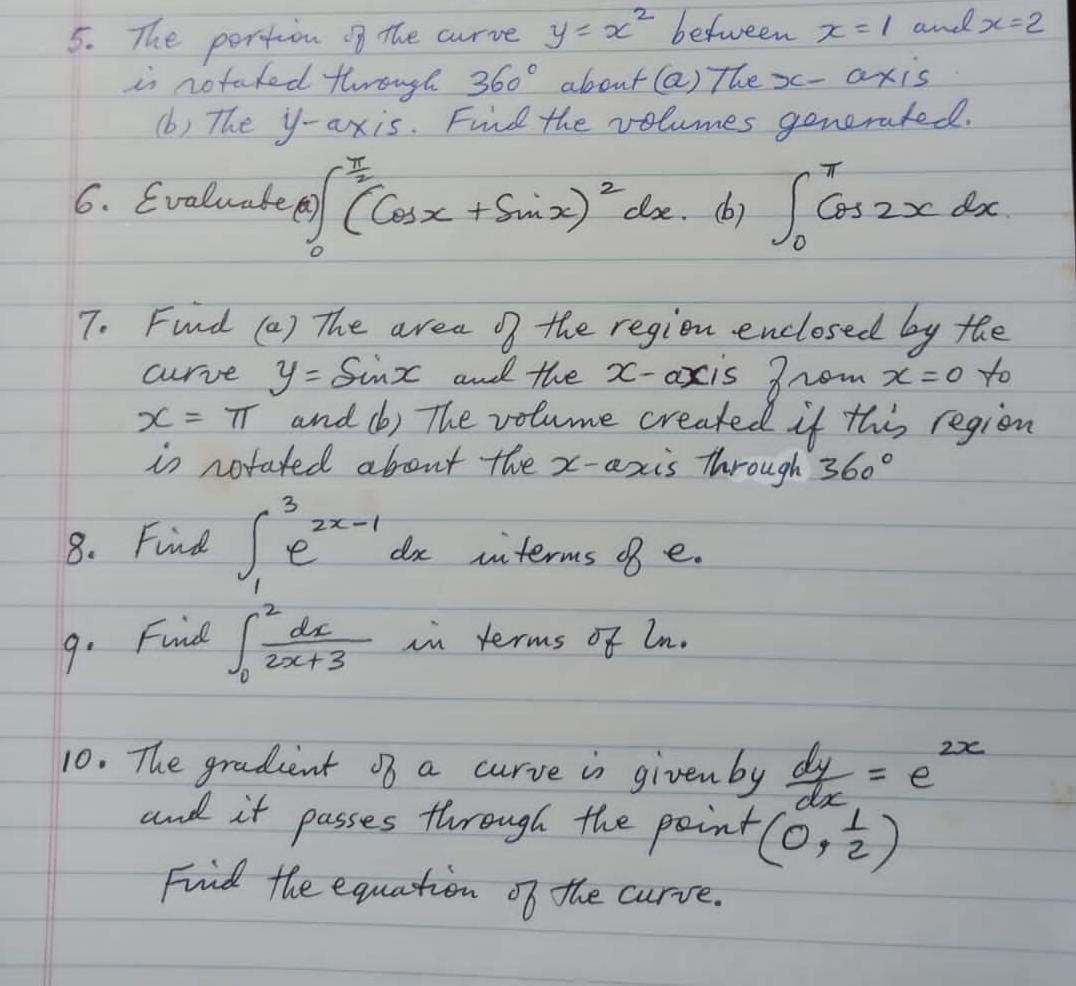 5. The portion of the curve y = x² between x = 1 and x = 2
is rotated through 360° about (a) The x- axis
(b) The y-axis. Find the volumes generated.
6. Evaluate (a) ∫₀^(π/2) (Cosx + Sinx)² dx. (b) ∫₀^π Cos 2x dx.
7. Find (a) The area of the region enclosed by the
curve y = Sinx and the x-axis from x = 0 to
x = π and (b) The volume created if this region
is rotated about the x-axis through 360°
8. Find ∫₁³ e^(2x-1) dx interms of e.
9. Find ∫₀² dx/(2x+3) in terms of ln.
10. The gradient of a curve is given by dy/dx = e^(2x)
and it passes through the point (0, 1/2)
Find the equation of the curve.